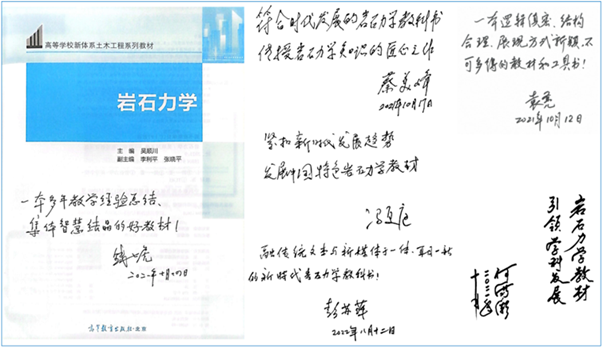 高等学校新体系土木工程系列教材
岩石力学
主编 吴顺川
副主编 李利平 张晓平
一本多年教学经验总结、
集体智慧结晶的好教材！
高等教育出版社·北京
符合时代发展的岩石力学教科书
传授岩石力学知识的匠心之作
蔡美峰
2021年10月17日
紧扣新时代发展趋势
发展中国特色岩石力学教材
冯夏庭
融传统文本与新媒体于一体，耳目一新
的新时代岩石力学教科书！
彭苏萍
一本逻辑缜密、结构
合理、展现方式新颖、不
可多得的教材和工具书！
袁亮
2021年10月12日
岩石力学教材
引领学科发展
何满潮